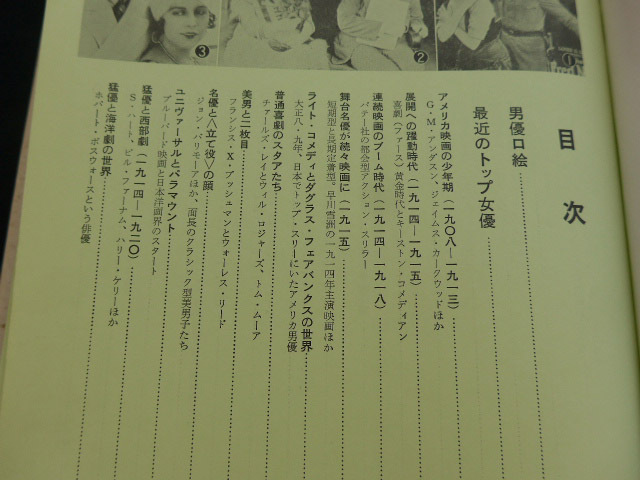 目次
男優口絵
最近のトップ女優
アメリカ映画の少年期（一九〇八―一九一三）
G・M・アンダスン、ジェイムス・カークウッドほか
展開への躍動時代（一九一四―一九一五）
喜劇（ファース）黄金時代とキーストン・コメディアン
連続映画のブーム時代（一九一四―一九一八）
パテー社の都会型アクション・スリラー
舞台名優が続々映画に（一九一五）
短期型と長期定着型。早川雪洲の一九一四年主演映画ほか
ライト・コメディとダグラス・フェアバンクスの世界
大正八・九年、日本でトップ・スリーにいたアメリカ男優
普通喜劇のスタアたち
チャールズ・レイとウィル・ロジャーズ、トム・ムーア
美男と二枚目
フランシス・X・ブッシュマンとウォーレス・リード
名優と〈立て役〉の顔
ジョン・バリモーアほか、面長のクラシック型美男子たち
ユニヴァーサルとパラマウント
ブルーバード映画と日本洋画界のスタート
猛優と西部劇（一九一四―一九二〇）
S・ハート、ビル・ファーナム、ハリー・ケリーほか
猛優と海洋劇の世界
ホバート・ボスウォースという俳優
③
②
①